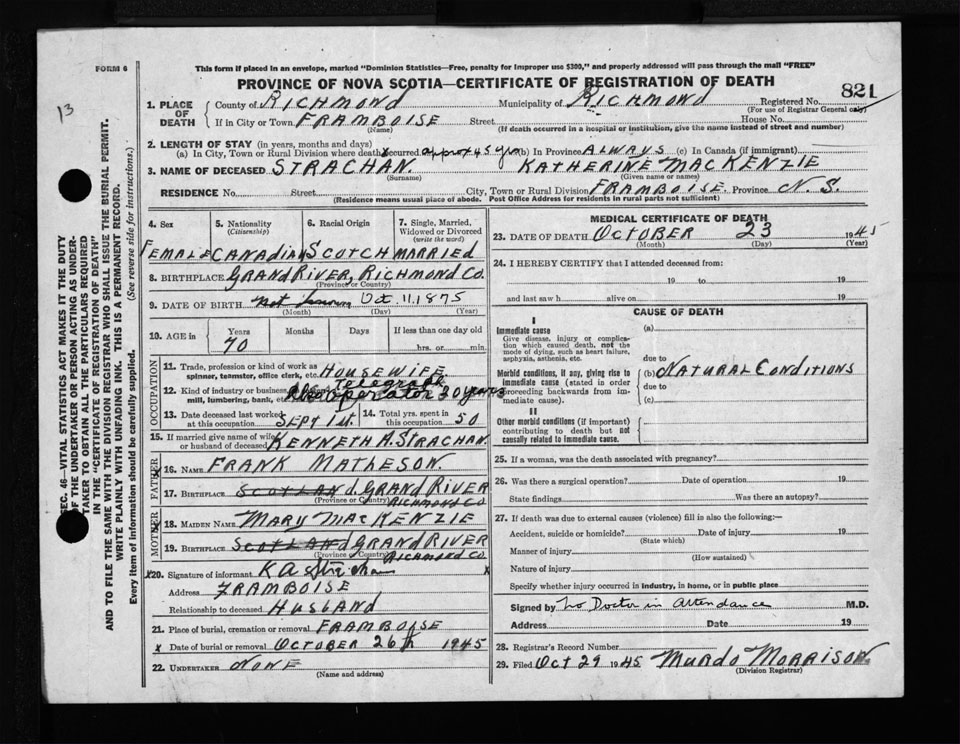 FORM 6
This form if placed in an envelope, marked "Dominion Statistics—Free, penalty for improper use $300," and properly addressed will pass through the mail "FREE"
PROVINCE OF NOVA SCOTIA—CERTIFICATE OF REGISTRATION OF DEATH
821
13
1. PLACE OF DEATH County of RICHMOND Municipality of RICHMOND Registered No.
(For use of Registrar General only)
If in City or Town FRAMBOISE Street House No.
(Name) (If death occurred in a hospital or institution, give the name instead of street and number)
2. LENGTH OF STAY (in years, months and days)
(a) In City, Town or Rural Division where death occurred approx 45 yrs (b) In Province ALWAYS (c) In Canada (if immigrant)
3. NAME OF DECEASED STRACHAN. KATHERINE MACKENZIE
(Surname) (Given name or names)
RESIDENCE No. Street City, Town or Rural Division FRAMBOISE. Province N.S.
(Residence means usual place of abode. Post Office Address for residents in rural parts not sufficient)
SEC. 46—VITAL STATISTICS ACT MAKES IT THE DUTY
OF THE UNDERTAKER OR PERSON ACTING AS UNDER-
TAKER TO OBTAIN ALL THE PARTICULARS REQUIRED
IN THE "CERTIFICATE OF REGISTRATION OF DEATH"
AND TO FILE THE SAME WITH THE DIVISION REGISTRAR WHO SHALL ISSUE THE BURIAL PERMIT.
WRITE PLAINLY WITH UNFADING INK. THIS IS A PERMANENT RECORD.
Every item of information should be carefully supplied. (See reverse side for instructions.)
4. Sex 5. Nationality (Citizenship) 6. Racial Origin 7. Single, Married, Widowed or Divorced (write the word)
FEMALE CANADIAN SCOTCH MARRIED
8. BIRTHPLACE GRAND RIVER, RICHMOND Co.
(Province or Country)
9. DATE OF BIRTH not known Oct. 11, 1875
(Month) (Day) (Year)
10. AGE in Years Months Days If less than one day old
70 hrs. or min.
OCCUPATION
11. Trade, profession or kind of work as spinner, teamster, office clerk, etc. HOUSEWIFE.
12. Kind of industry or business mill, lumbering, bank, etc. Also Telegraph operator 30 years
13. Date deceased last worked at this occupation SEPT 1st. 14. Total yrs. spent in this occupation 50
15. If married give name of wife or husband of deceased KENNETH A. STRACHAN.
FATHER
16. NAME FRANK MATHESON.
17. BIRTHPLACE SCOTLANd GRAND RIVER
(Province or Country) RICHMOND CO
MOTHER
18. MAIDEN NAME MARY MACKENZIE
19. BIRTHPLACE SCOTLANd GRAND RIVER
(Province or Country) RICHMOND CO.
x20. Signature of informant K A Strachan x
Address FRAMBOISE
Relationship to deceased HUSBAND
21. Place of burial, cremation or removal FRAMBOISE
x Date of burial or removal OCTOBER 26th 1945
22. UNDERTAKER NONE
(Name and address)
MEDICAL CERTIFICATE OF DEATH
23. DATE OF DEATH OCTOBER 23 1945
(Month) (Day) (Year)
24. I HEREBY CERTIFY that I attended deceased from:
19 to 19
and last saw h alive on 19
CAUSE OF DEATH
I
Immediate cause (a)
Give disease, injury or complication which caused death, not the mode of dying, such as heart failure, asphyxia, asthenia, etc.
due to
Morbid conditions, if any, giving rise to immediate cause (stated in order proceeding backwards from immediate cause). (b) NATURAL CONDITIONS
due to
(c)
II
Other morbid conditions (if important) contributing to death but not causally related to immediate cause.
25. If a woman, was the death associated with pregnancy?
26. Was there a surgical operation? Date of operation 19
State findings Was there an autopsy?
27. If death was due to external causes (violence) fill in also the following:—
Accident, suicide or homicide? Date of injury 19
(State which)
Manner of injury
(How sustained)
Nature of injury
Specify whether injury occurred in industry, in home, or in public place
Signed by No Doctor in Attendance M.D.
Address Date 19
28. Registrar's Record Number
29. Filed Oct 29 1945 MURDO MORRISON
(Division Registrar)